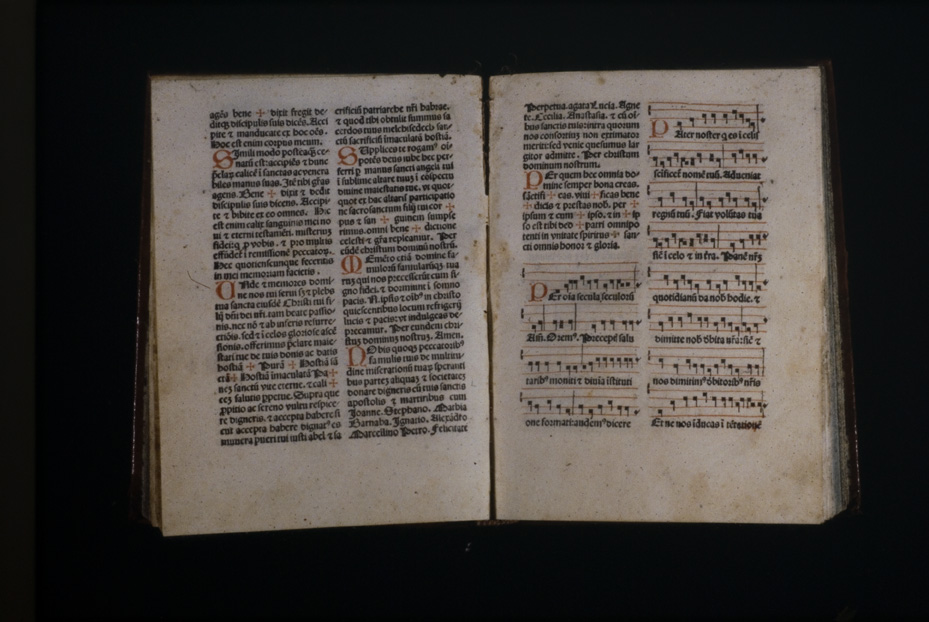 agēs bene ✠ dixit fregit de-
ditq̄ discipulis suis dicēs. Acci
pite ⁊ manducate ex hoc oēs.
Hoc est enim corpus meum.
Simili modo posteaq̄ ce-
natū est: accipiēs ⁊ hunc
bēlaꝫ calicē ī sanctas ac venera
biles manus suas. Itē tibi grās
agens. Bene ✠ dixit ⁊ dedit
discipulis suis dicens. Accipi-
te ⁊ bibite ex eo omnes. Hic
est enim calix sanguinis mei no
ui ⁊ eterni testamēti. misteriuꝫ
fidei: q̄ p̄ vobis. ⁊ pro multis
effūdet ī remissionē peccatoꝝ.
Hec quotienscunque feceritis
in mei memoriam facietis.
Unde ⁊ memores domi-
ne nos tui serui sꝫ ⁊ plebs
tua sancta eiusdē Christi tui fi-
lij dn̄i dei nr̄i. tam beate passio-
nis. nec nō ⁊ ab inferis resurre-
ctiōis. sed ⁊ ī celos gloriose ascē
sionis. offerimus p̄clare maie-
stati tue de tuis donis ac datis
hostiā ✠ Purā ✠ Hostiā sā
ctā ✠ Hostiā īmaculatā Pa ✠
neꝫ sanctū vite eterne. ⁊ cali ✠
ceꝫ salutis ppetue. Supra que
ppitio ac sereno vultu respice-
re digneris. ⁊ accepta habere si
cut accepta habere dignatꝰ es
munera pueri tui iusti abel ⁊ sa
crificiū patriarche nr̄i habrae.
⁊ quod tibi obtulit summus sa
cerdos tuus melchisedech san-
ctū sacrificiū īmaculatā hostiā.
Supplices te rogamꝰ oī-
potēs deus iube hec per-
ferri p̄ manus sancti angeli tui
ī sublime altare tuuꝫ ī cōspectu
diuine maiestatis tue. vt quot-
quot ex hac altaris participatio
ne sacrosanctum filij tui cor ✠
pus ⁊ san ✠ guinem sumpse
rimus. omni bene ✠ dictione
celesti ⁊ grā repleamur. Per
eūdē christum dominū nostrū.
Memēto etiā domine fa-
muloꝝ famularūqꝫ tua
rum qui nos precesserūt cum si-
gno fidei. ⁊ dormiunt ī somno
pacis. N. ipsis ⁊ oībꝰ in christo
quiescentibus locum refrigerij
lucis ⁊ pacis: vt indulgeas de-
precamur. Per eundem chri-
stuꝫ dominuꝫ nostruꝫ. Amen.
Nobis quoqꝫ peccatoribꝰ
famulis tuis de multitu-
dine miserationū tuaꝝ speranti
bus partem aliquaꝫ ⁊ societateꝫ
donare digneris cū tuis sanctis
apostolis ⁊ martiribus cum
Joanne. Stephano. Mathia
Barnaba. Ignatio. Alexādro
Marcellino Petro. Felicitate
Perpetua. agata Lucia. Agne
te. Cecilia. Anastasia. ⁊ cū oī-
bus sanctis tuis: intra quorum
nos consortiuꝫ non extimator
meriti: sed venie quesumus lar
gitor admitte. Per christum
dominum nostrum.
Per quem hec omnia do-
mine semper bona creas.
sāctifi ✠ cas. viui ✠ ficas bene
✠ dicis ⁊ prestas nob. per ✠
ipsum ⁊ cum ✠ ipso. ⁊ in ✠ ip
so est tibi deo ✠ patri omnipo
tenti in vnitate spiritus ✠ san-
cti omnis honor ⁊ gloria.
Per oīa secula seculorū
Amē. Oremꝰ. Preceptꝭ salu
taribꝰ moniti ⁊ diuīa īstituti
one formati: audemꝰ dicere
Pater noster q̄ es ī celis
scificet̄ nomē tuū. Adueniat
regnū tuū. Fiat volūtas tua
sic̄ ī celo ⁊ in t̄ra. Panē nr̄ꝫ
quotidianū da nob hodie. ⁊
dimitte nob debita nr̄a: sic̄ ⁊
nos dimittimꝰ debitoribꝰ nr̄is
Et ne nos īducas ī tētationē